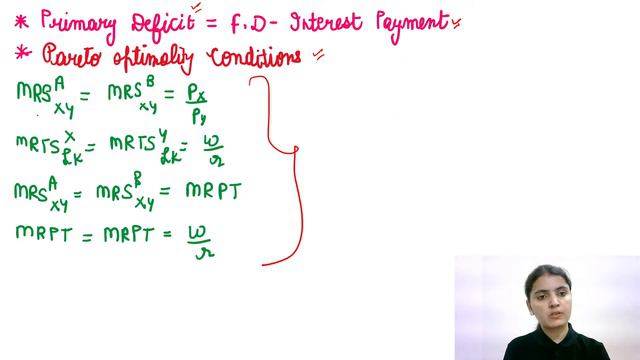 * Primary Deficit = F.D - Interest Payment
* Pareto optimality Conditions
MRS^A_xy = MRS^B_xy = Px/Py
MRTS^X_LK = MRTS^Y_LK = w/r
MRS^A_xy = MRS^B_xy = MRPT
MRPT = MRPT = w/r